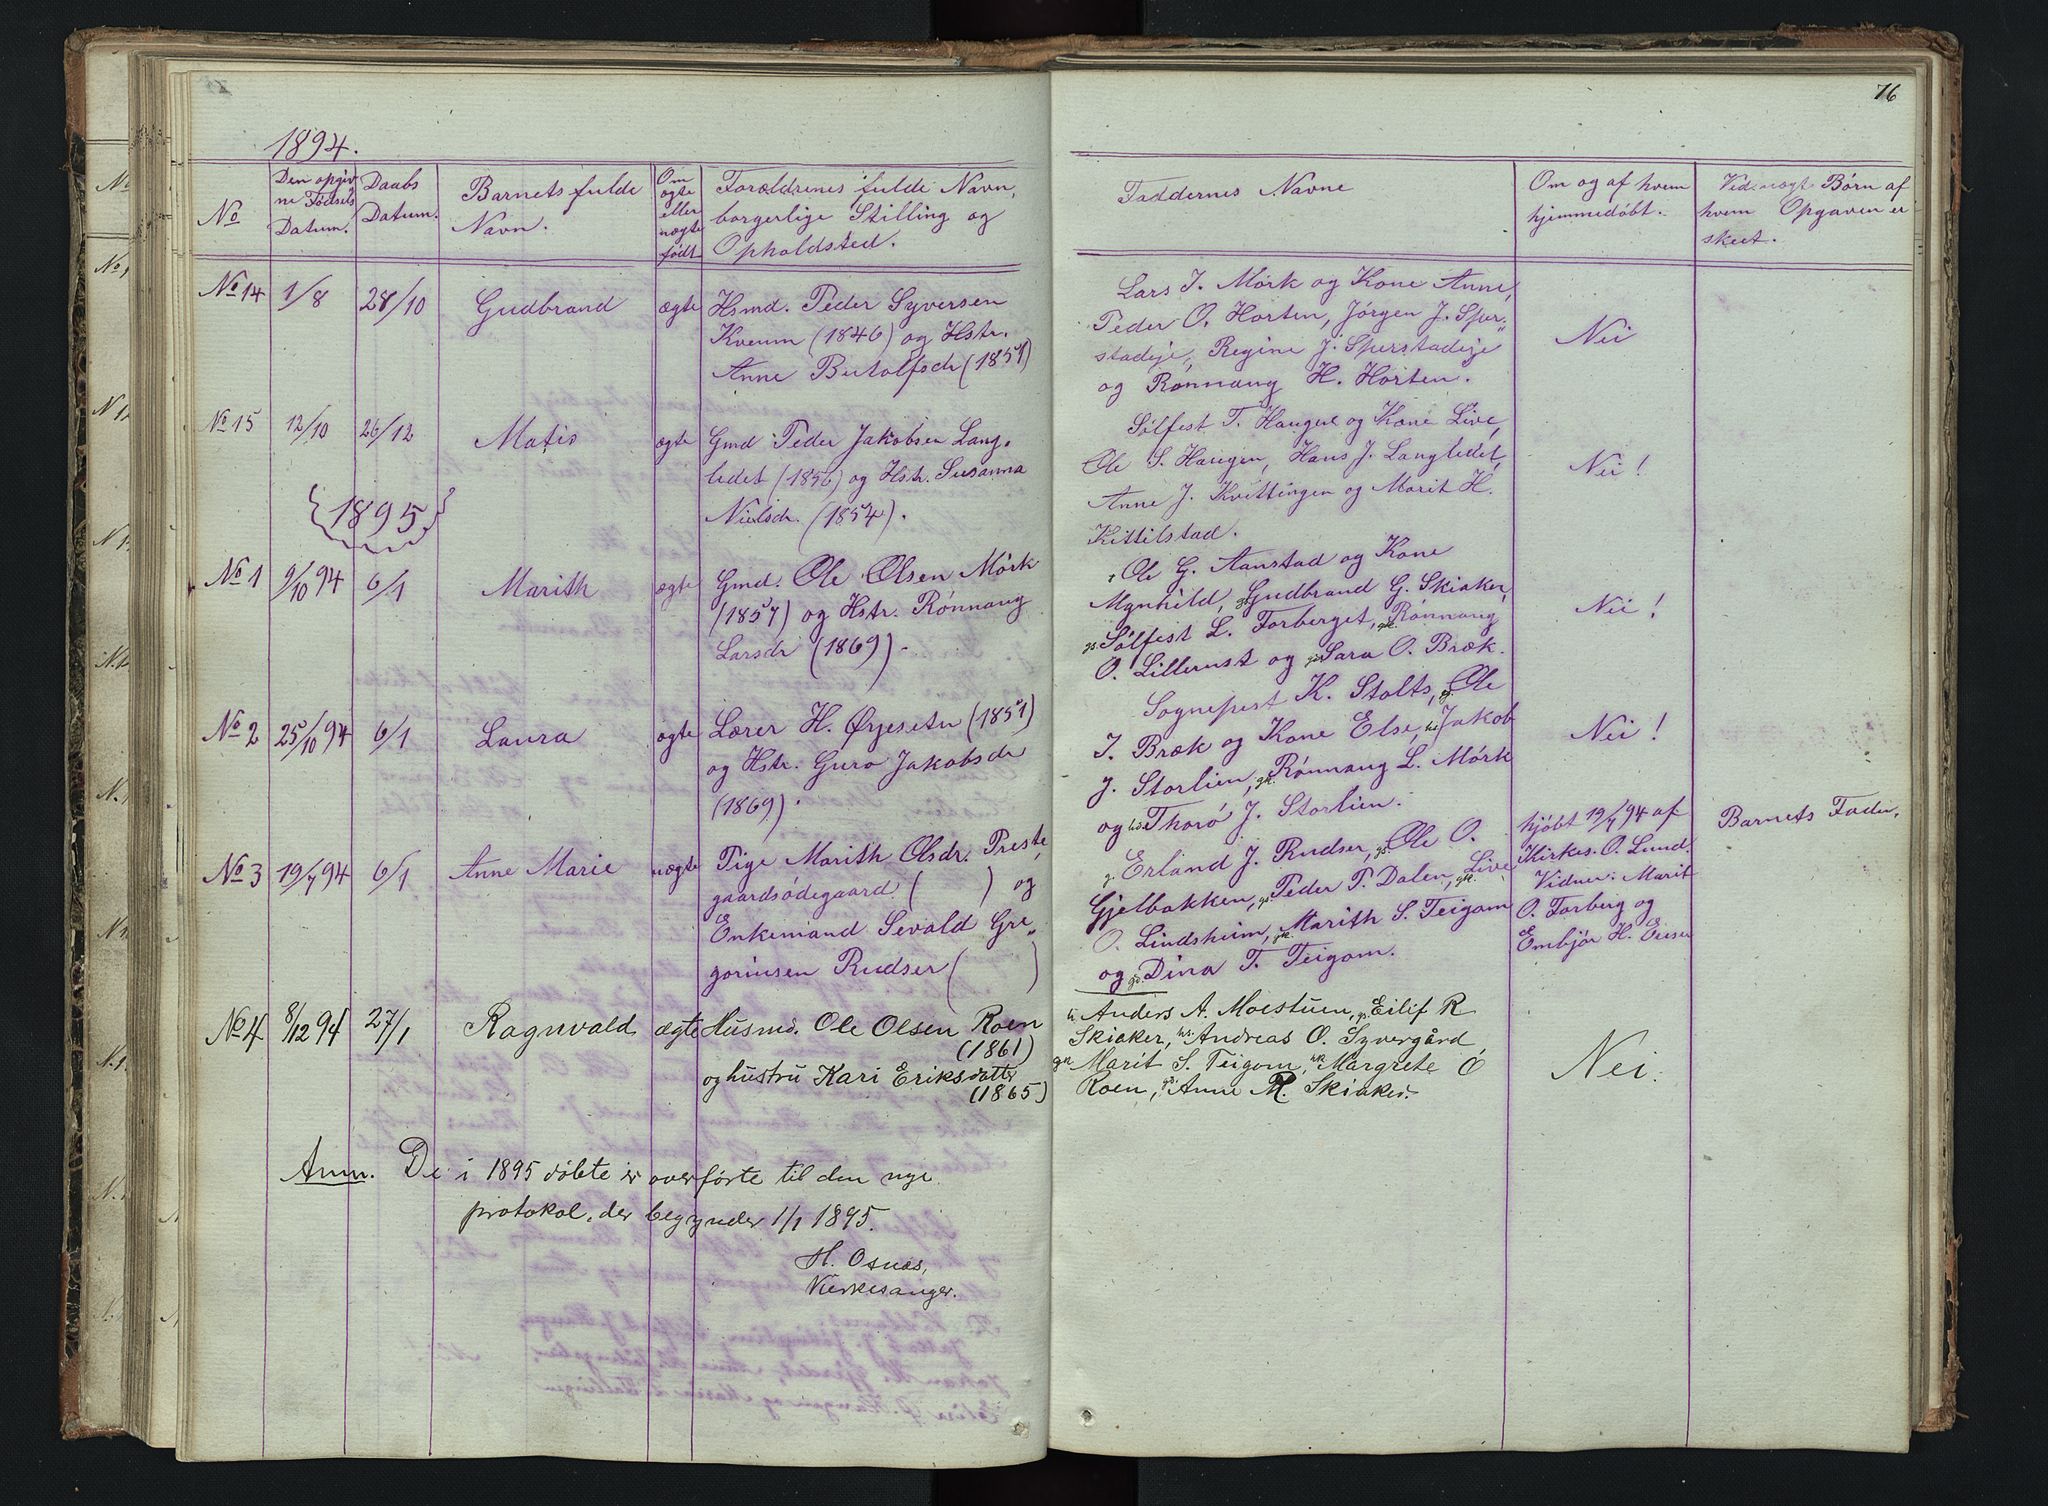 76
1894.
No
Den opgiv
ne Fødsels
Datum.
Daabs
Datum.
Barnets fulde
Navn.
Om
ægte
eller
uægte
født
Forældrenes fulde Navn,
borgerlige Stilling og
Opholdsted.
Faddernes Navne
Om og af hvem
hjemmedøbt.
Ved uægt Børn af
hvem Opgaven er
skeet.
No 14 1/8 28/10 Gudbrand ægte
Hsmd. Peder Syversen
Kveum (1846) og Hstr.
Anne Butolfsdr (1851)
Lars J. Mørk og Kone Anne,
Peder O. Horten, Jørgen J. Sper„
stadeje, Regine J. Sperstadeje
og Rønnaug H. Horten.
Nei
No 15 12/10 26/12 Matis ægte
Gmd Peder Jakobsen Lang„
ledet (1856) og Hstr. Susanna
Nielsdr. (1854).
Sølfest T. Haugen og Kone Live,
Ole S. Haugen, Hans J. Langledet,
Anne J. Kvittingen og Marit H.
Kittilstad.
Nei!
{1895}
No 1 9/10 94 6/1 Marith ægte
Gmd. Ole Olsen Mørk
(1857) og Hstr. Rønnaug
Larsdr (1869).
Ole G. Aanstad og Kone
Magnhild, Gudbrand G. Skiaker,
gs. Sølfest L. Forberget, gk. Rønnaug
O. Lillerust og Sara O. Bræk.
Nei!
No 2 25/10 94 6/1 Laura ægte
Lærer H. Øyjesetn (1851)
og Hstr. Guro Jakobsdr
(1869).
Sognepest K. Stolts, g. Ole
I. Bræk og Kone Else, Jakob
J. Storlien, gk. Rønnaug L. Mørk
og Thorø J. Storlien.
Nei!
No 3 19/7 94 6/1 Anne Marie uægte
Pige Marith Olsdr. Preste„
gaardsødegaard ( ) og
Enkemand Sevald Gre„
goriusen Rudser ( )
g. Erland J. Rudser, gs. Ole O.
Gjelbakken, gs. Peder P. Dalen, gk. Live
O. Lindsheim, gk. Marith S. Teigom
og gd. Dina T. Teigom.
hjøbt 19/7 94 af
Kirkes. O. Lund
Vidner: Marit
O. Forberg og
Embjør H. Øeser
Barnets Fader.
No 4 8/12 94 27/1 Ragnvald ægte
Husmd. Ole Olsen Roen
(1861)
og hustru Kari Eriksdatter
(1865)
h. Anders A. Moestuen, gs. Eilif R
Skiaker, hs. Andreas O. Syvergård,
gk Marit S. Teigom, hk Margrete O
Roen, gd. Anne R. Skiaker.
Nei.
Anm. De i 1895 døbte er overførte til den nye
protokol, der begynder 1/1 1895.
H. Osnæs,
Kirkesanger.